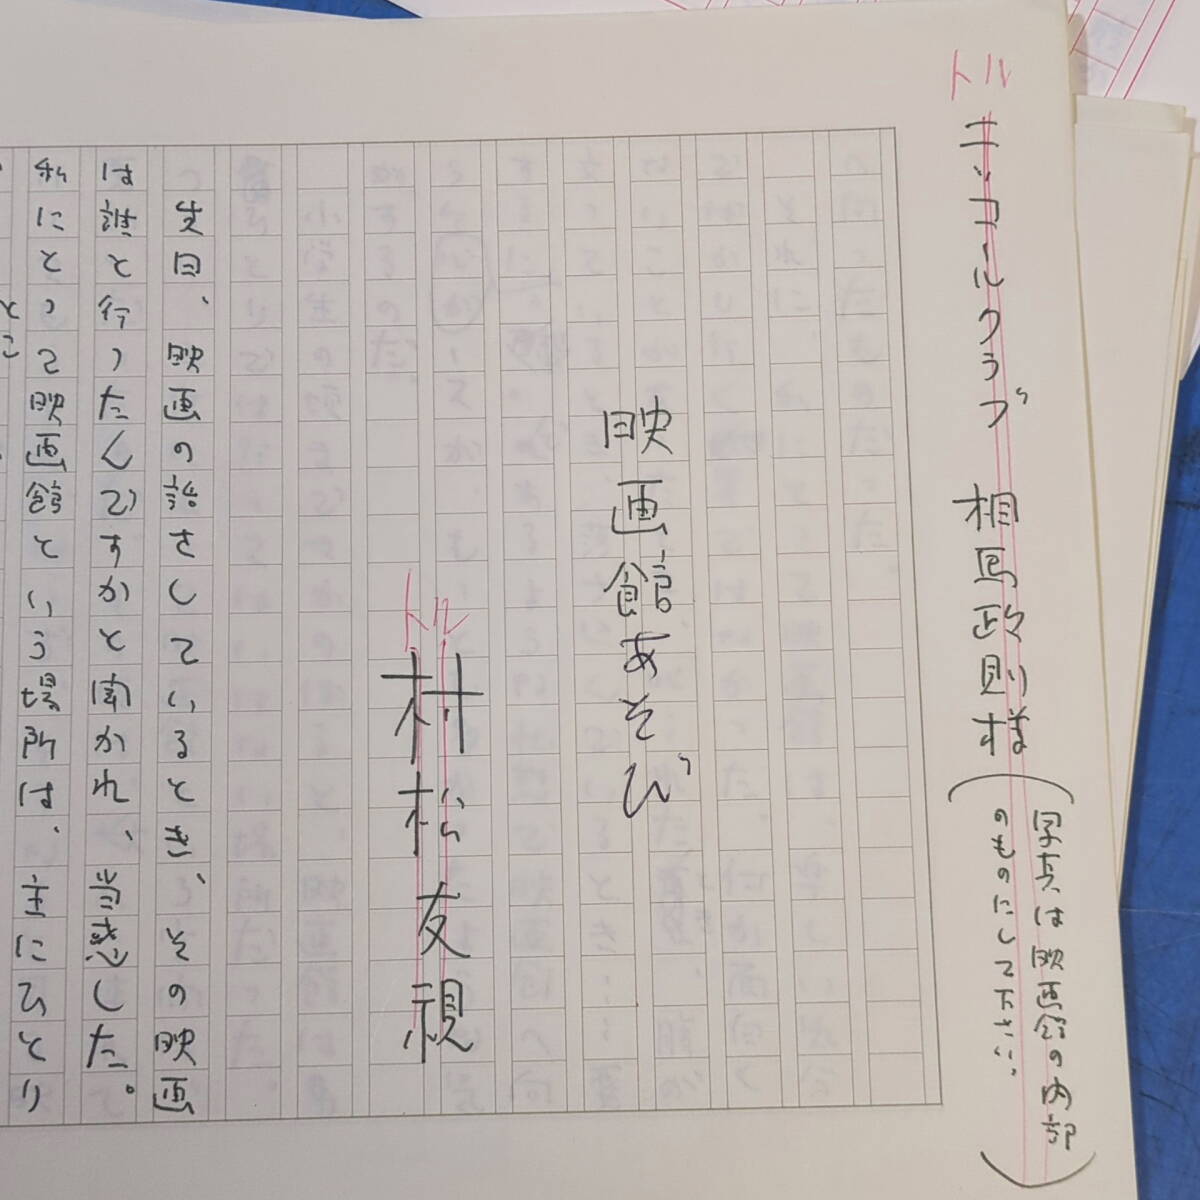 トル
ニッコールクラブ 相馬政則様
(写真は映画館の内部
のものにして下さい。)
映画館あそび
トル
村松友視
先日、映画の話さしているとき、その映画
は誰と行ったんですかと聞かれ、当惑した。
私にとって映画館という場所は、主にひとり
とこ